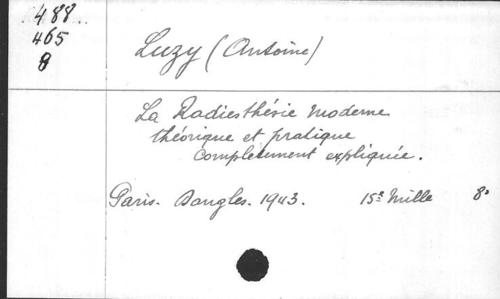 488
465
8
Luzy (Antoine)
La Radiesthésie moderne
théorique et pratique
complètement expliquée.
Paris. Dangles. 1943. 15e Mille 8°